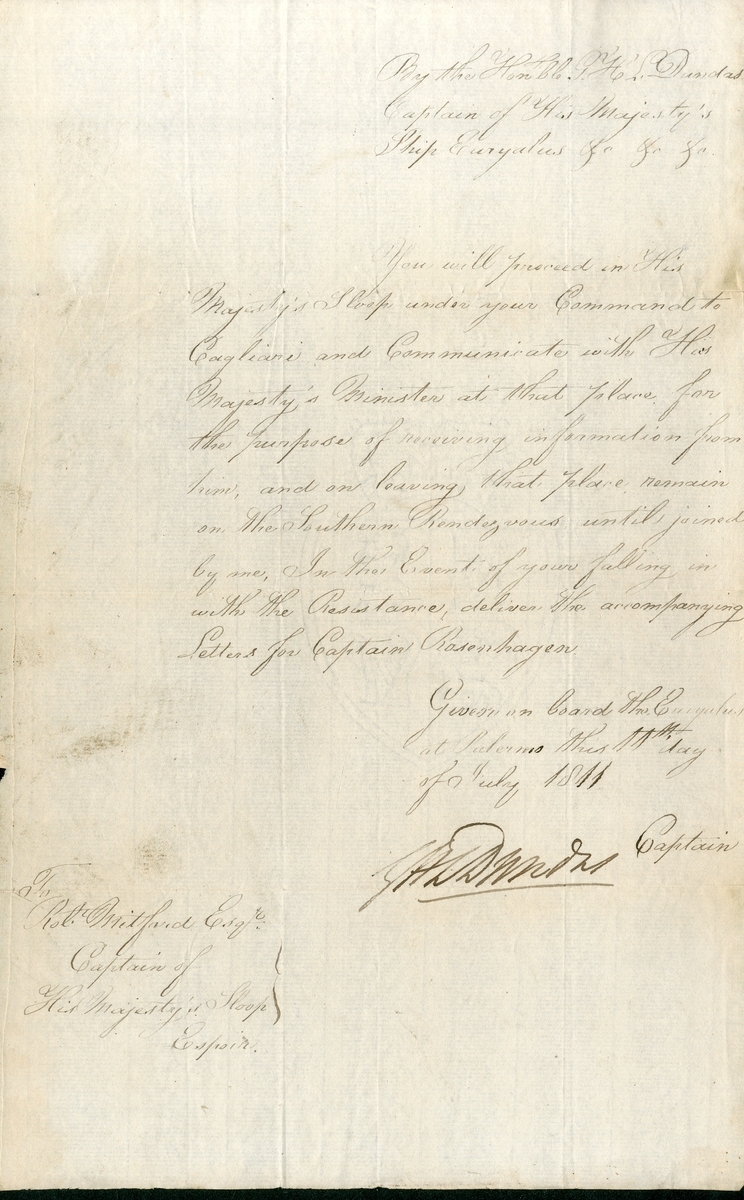 By the Honble. G. H. L. Dundas
Captain of His Majesty's
Ship Euryalus &c &c &c.
You will proceed in His
Majesty's Sloop under your Command to
Cagliari and Communicate with His
Majesty's Minister at that place, for
the purpose of receiving information from
him, and on leaving that place remain
on the Southern Rendezvous until joined
by me, In the Event of your falling in
with the Resistance, deliver the accompanying
Letters for Captain Rosenhagen.
Given on board the Euryalus
at Palermo this 11th day
of July 1811
GHLDundas Captain
To
Robt. Mitford Esqre.
Captain of
His Majesty's Sloop
Espoir.